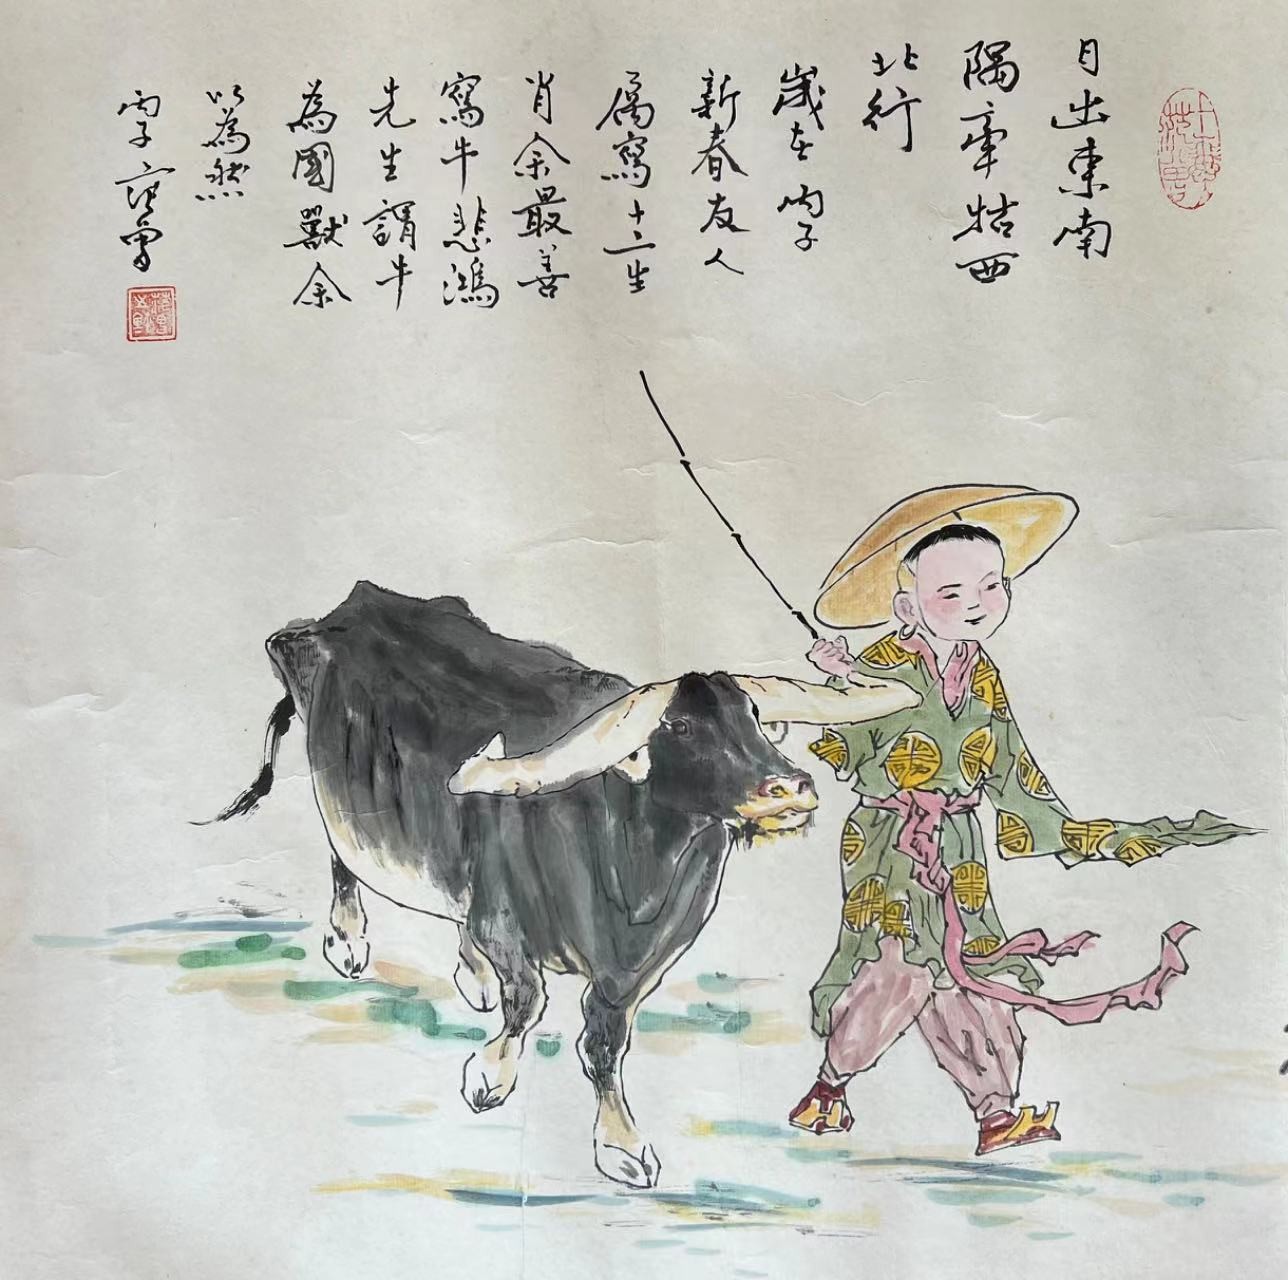 日出東南
隅牽牯西
北行
歲在丙子
新春友人
屬寫十二生
肖余最善
寫牛悲鴻
先生謂牛
為國獸余
以為然
丙子范曾